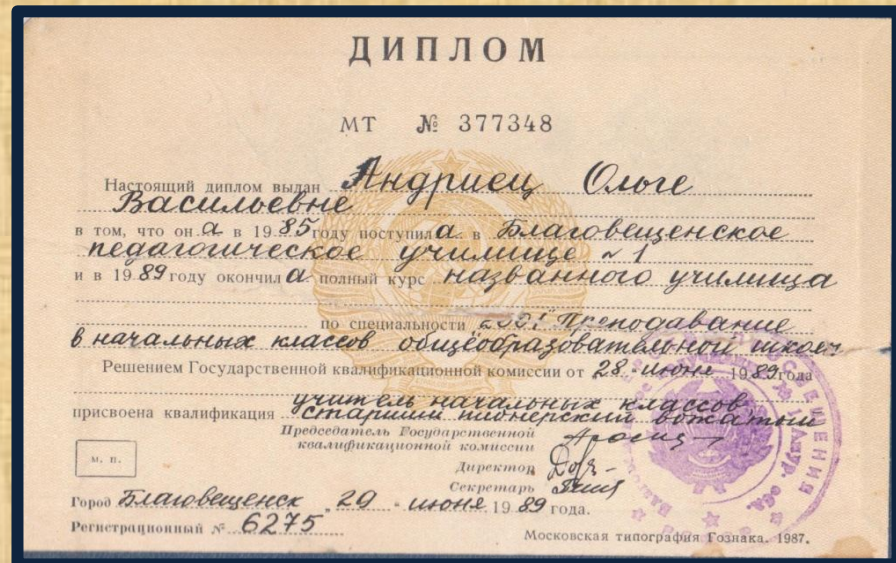 ДИПЛОМ
МТ № 377348
Настоящий диплом выдан Андриец Ольге
Васильевне
в том, что она в 1985 году поступила в Благовещенское
педагогическое училище № 1
и в 1989 году окончила полный курс названного училища
по специальности 2001 Преподавание
в начальных классов общеобразовательной школы
Решением Государственной квалификационной комиссии от 28 июня 1989 года
учитель начальных классов
присвоена квалификация старший пионерский вожатый
Председатель Государственной
квалификационной комиссии
М. П.
Директор
Секретарь
Город Благовещенск 29 июня 1989 года.
Регистрационный № 6275
Московская типография Гознака. 1987.